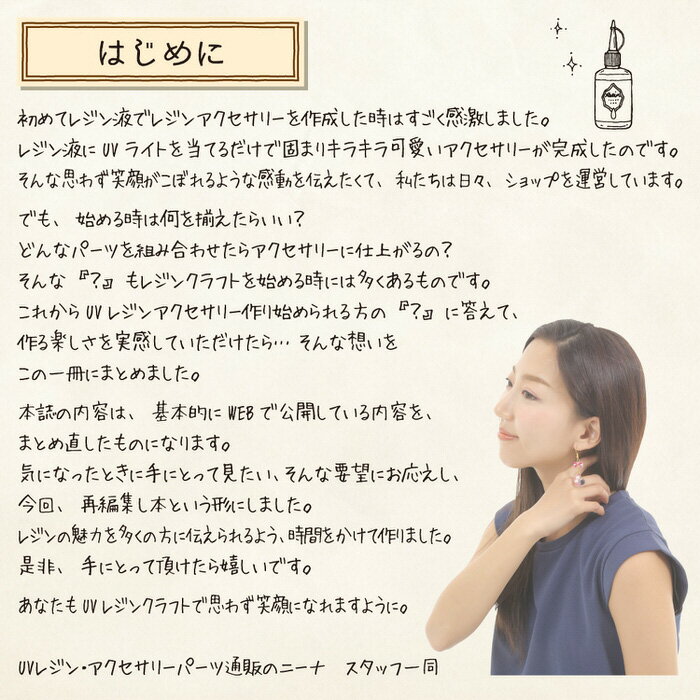 はじめに
初めてレジン液でレジンアクセサリーを作成した時はすごく感激しました。
レジン液にUVライトを当てるだけで固まりキラキラ可愛いアクセサリーが完成したのです。
そんな思わず笑顔がこぼれるような感動を伝えたくて、私たちは日々、ショップを運営しています。
でも、始める時は何を揃えたらいい?
どんなパーツを組み合わせたらアクセサリーに仕上がるの?
そんな『?』もレジンクラフトを始める時には多くあるものです。
これからUVレジンアクセサリー作り始められる方の『?』に答えて、
作る楽しさを実感していただけたら…そんな想いを
この一冊にまとめました。
本誌の内容は、基本的にWEBで公開している内容を、
まとめ直したものになります。
気になったときに手にとって見たい、そんな要望にお応えし、
今回、再編集し本という形にしました。
レジンの魅力を多くの方に伝えられるよう、時間をかけて作りました。
是非、手にとって頂けたら嬉しいです。
あなたもUVレジンクラフトで思わず笑顔になれますように。
UVレジン・アクセサリーパーツ通販のニーナ スタッフ一同